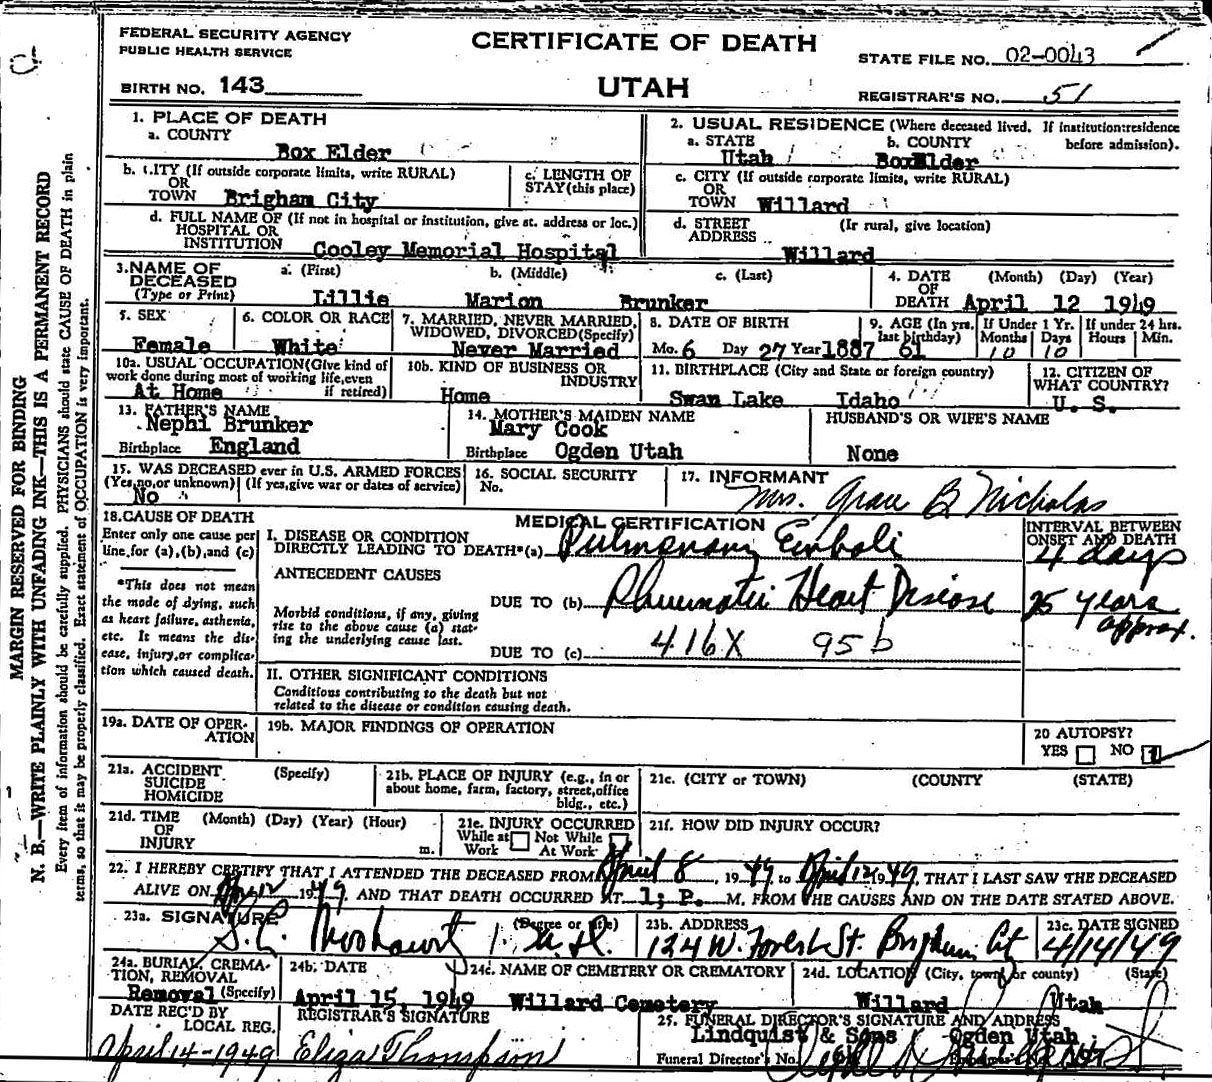 FEDERAL SECURITY AGENCY
PUBLIC HEALTH SERVICE
CERTIFICATE OF DEATH
STATE FILE NO. 02-0043
BIRTH NO. 143
UTAH
REGISTRAR'S NO. 51
MARGIN RESERVED FOR BINDING
N. B.—WRITE PLAINLY WITH UNFADING INK—THIS IS A PERMANENT RECORD
Every item of information should be carefully supplied. PHYSICIANS should state CAUSE OF DEATH in plain
terms, so that it may be properly classified. Exact statement of OCCUPATION is very important.
1. PLACE OF DEATH
a. COUNTY
Box Elder
2. USUAL RESIDENCE (Where deceased lived. If institution:residence
before admission).
a. STATE
Utah
b. COUNTY
BoxElder
b. CITY (If outside corporate limits, write RURAL)
OR
TOWN Brigham City
c. LENGTH OF
STAY (this place)
c. CITY (If outside corporate limits, write RURAL)
OR
TOWN Willard
d. FULL NAME OF (If not in hospital or institution, give st. address or loc.)
HOSPITAL OR
INSTITUTION Cooley Memorial Hospital
d. STREET (If rural, give location)
ADDRESS
Willard
3. NAME OF
DECEASED
(Type or Print)
a. (First) b. (Middle) c. (Last)
Lillie Marion Brunker
4. DATE (Month) (Day) (Year)
OF
DEATH April 12 1949
5. SEX
Female
6. COLOR OR RACE
White
7. MARRIED, NEVER MARRIED,
WIDOWED, DIVORCED (Specify)
Never Married
8. DATE OF BIRTH
Mo. 6 Day 27 Year 1887
9. AGE (In yrs.
last birthday)
61
If Under 1 Yr.
Months Days
10 10
If under 24 hrs.
Hours Min.
10a. USUAL OCCUPATION (Give kind of
work done during most of working life, even
if retired)
At Home
10b. KIND OF BUSINESS OR
INDUSTRY
Home
11. BIRTHPLACE (City and State or foreign country)
Swan Lake Idaho
12. CITIZEN OF
WHAT COUNTRY?
U. S.
13. FATHER'S NAME
Nephi Brunker
Birthplace England
14. MOTHER'S MAIDEN NAME
Mary Cook
Birthplace Ogden Utah
HUSBAND'S OR WIFE'S NAME
None
15. WAS DECEASED ever in U.S. ARMED FORCES
(Yes, no, or unknown) (If yes, give war or dates of service)
No
16. SOCIAL SECURITY
No.
17. INFORMANT
Mrs. Grace B Nicholas
18. CAUSE OF DEATH
Enter only one cause per
line, for (a), (b), and (c)
*This does not mean
the mode of dying, such
as heart failure, asthenia,
etc. It means the dis-
ease, injury, or complica-
tion which caused death.
MEDICAL CERTIFICATION
INTERVAL BETWEEN
ONSET AND DEATH
I. DISEASE OR CONDITION
DIRECTLY LEADING TO DEATH*(a) Pulmonary Emboli
4 days
ANTECEDENT CAUSES
Morbid conditions, if any, giving
rise to the above cause (a) stat-
ing the underlying cause last.
DUE TO (b) Rheumatic Heart Disease
25 years
approx.
DUE TO (c) 416X 95b
II. OTHER SIGNIFICANT CONDITIONS
Conditions contributing to the death but not
related to the disease or condition causing death.
19a. DATE OF OPER-
ATION
19b. MAJOR FINDINGS OF OPERATION
20 AUTOPSY?
YES NO
21a. ACCIDENT
SUICIDE
HOMICIDE
(Specify)
21b. PLACE OF INJURY (e.g., in or
about home, farm, factory, street, office
bldg., etc.)
21c. (CITY or TOWN) (COUNTY) (STATE)
21d. TIME (Month) (Day) (Year) (Hour)
OF
INJURY m.
21e. INJURY OCCURRED
While at Not While
Work At Work
21f. HOW DID INJURY OCCUR?
22. I HEREBY CERTIFY THAT I ATTENDED THE DECEASED FROM April 8, 1949 to April 12 1949, THAT I LAST SAW THE DECEASED
ALIVE ON Apr 12 1949, AND THAT DEATH OCCURRED AT 1; P. M. FROM THE CAUSES AND ON THE DATE STATED ABOVE.
23a. SIGNATURE (Degree or title)
M.D.
23b. ADDRESS
124 W. Forest St. Brigham City
23c. DATE SIGNED
4/14/49
24a. BURIAL, CREMA-
TION, REMOVAL
Removal (Specify)
24b. DATE
April 15, 1949
24c. NAME OF CEMETERY OR CREMATORY
Willard Cemetery
24d. LOCATION (City, town, or county) (State)
Willard Utah
DATE REC'D BY
LOCAL REG.
April 14-1949
REGISTRAR'S SIGNATURE
Eliza Thompson
25. FUNERAL DIRECTOR'S SIGNATURE AND ADDRESS
Lindquist & Sons Ogden Utah
Funeral Director's No.